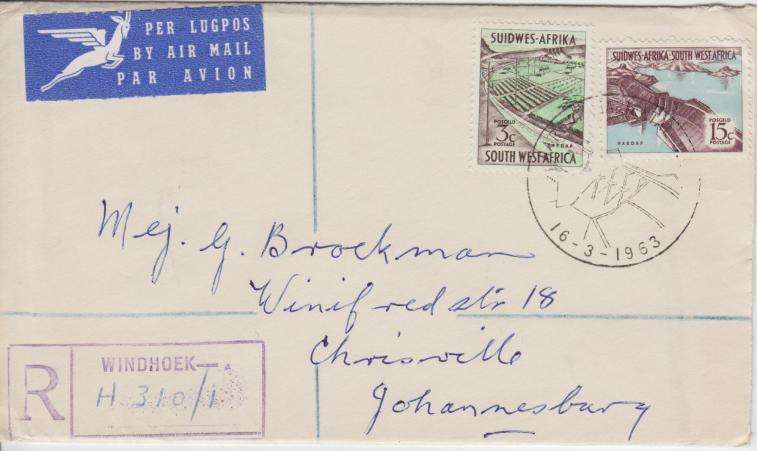 PER LUGPOS
BY AIR MAIL
PAR AVION
SUIDWES-AFRIKA
POSGELD
3c
POSTAGE
HARDAP
SOUTH WEST AFRICA
SUIDWES-AFRIKA·SOUTH WEST AFRICA
HARDAP
POSGELD
15c
POSTAGE
16-3-1963
Mej. G. Brockman
Winifredstr 18
Chrisville
Johannesburg
R
WINDHOEK
H 310/1